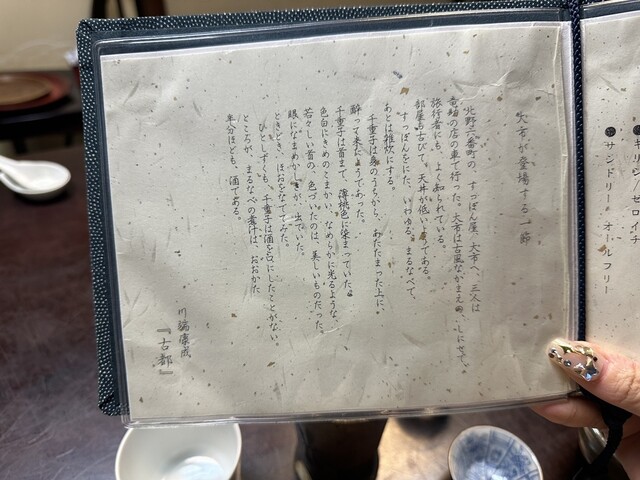 ●キリン ゼロイチ
●サンドリー オールフリー
大市が登場する一節
北野六番町の、すっぽん屋、大市へ、三人は
竜助の店の車で行った。大市は古風なかまえの、しにせで、
旅行者にも、よく知られている。
部屋も古びて、天井が低いようである。
すっぽんをにた、いわゆる、まるなべで、
あとは雑炊にする。
千重子は身のうちから、あたたまった上に。
酔って来たようであった。
千重子は首まで、薄桃色に染まっていた。
色白にきめのこまかい、なめらかに光るような、
若々しい首の、色づいたのは、美しいものだった。
眼になまめかしさが、出ていた。
ときどき、ほおをなでてみた。
ひとしずくも、千重子は酒を口にしたことがない。
ところが、まるなべの煮汁は、おおかた
半分ほども、酒である。
川端康成
『古都』